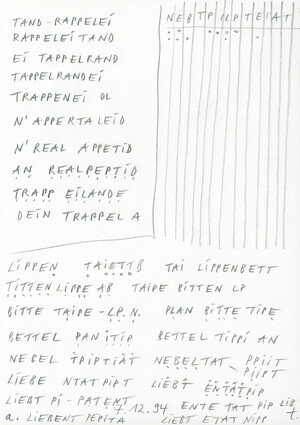 TAND-RAPPELEI
RAPPELEI TAND
EI TAPPELRAND
TAPPELRANDEI
TRAPPENEI DL
N'APPERTALEID
N'REAL APPETID
AN REALPEPTID
TRAPP EILANDE
DEIN TRAPPEL A
NEBTPILPTEIAT
LIPPEN TAIETTB TAI LIPPENBETT
TITTEN LIPPE AB TAIPE BITTEN LP
BITTE TAIPE-LP.N. PLAN BITTE TIPE
BETTEL PAN ITIP BETTEL TIPPI AN
NEBEL TPIPTIAT NEBELTAT PPIIT
PIIPT
LIEBE NTAT PIPT LIEBT ENTAT PIP
LIEBT PI-PATENT ENTE TAT PIP LIEB
7.12.94 t.
a. LIEBENT PEPITA LIEBT ETAT NIPP